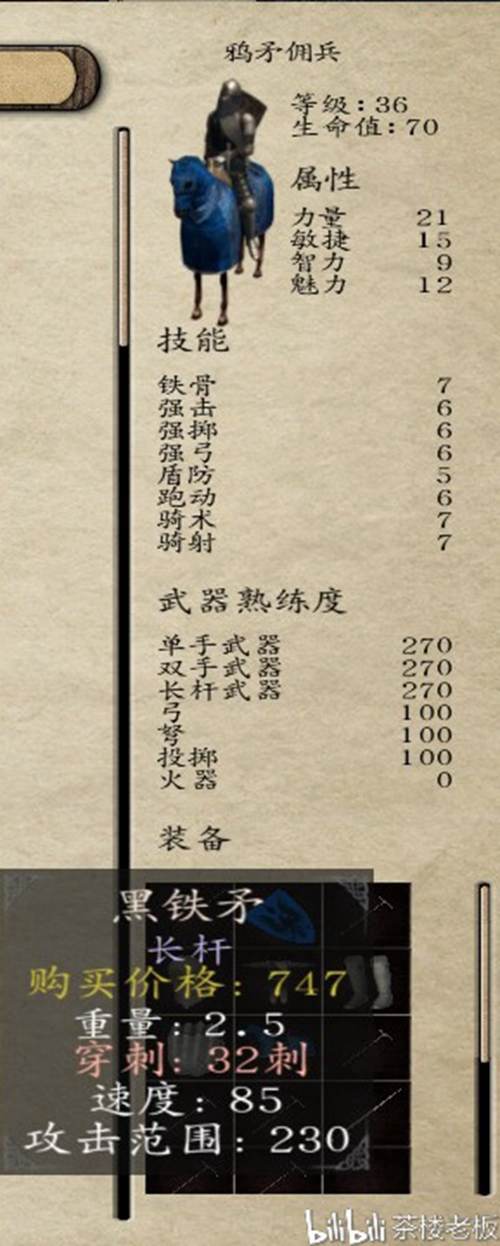 鸦矛佣兵
等级:36
生命值:70
属性
力量 21
敏捷 15
智力 9
魅力 12
技能
铁骨 7
强击 6
强掷 6
强弓 6
盾防 5
跑动 6
骑术 7
骑射 7
武器熟练度
单手武器 270
双手武器 270
长杆武器 270
弓 100
弩 100
投掷 100
火器 0
装备
黑铁矛
长杆
购买价格: 747
重量: 2.5
穿刺: 32刺
速度: 85
攻击范围: 230
bilibili 茶楼老板